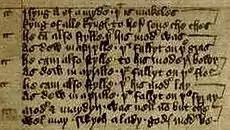 I syng of a mayden þt is makeles
kyng of alle kynges to her sone che ches
he cam also stylle þer his moder was
as dew in aprylle þt fallyt on þe gras
he cam also stylle to his moderes bowr
as dew in aprille þt fallyt on þe flour
he cam also stylle þer his moder lay
as dew in aprille þt fallyt on þe spray
moder & maydyn was neuer non but che
wel may swych a lady godes moder be